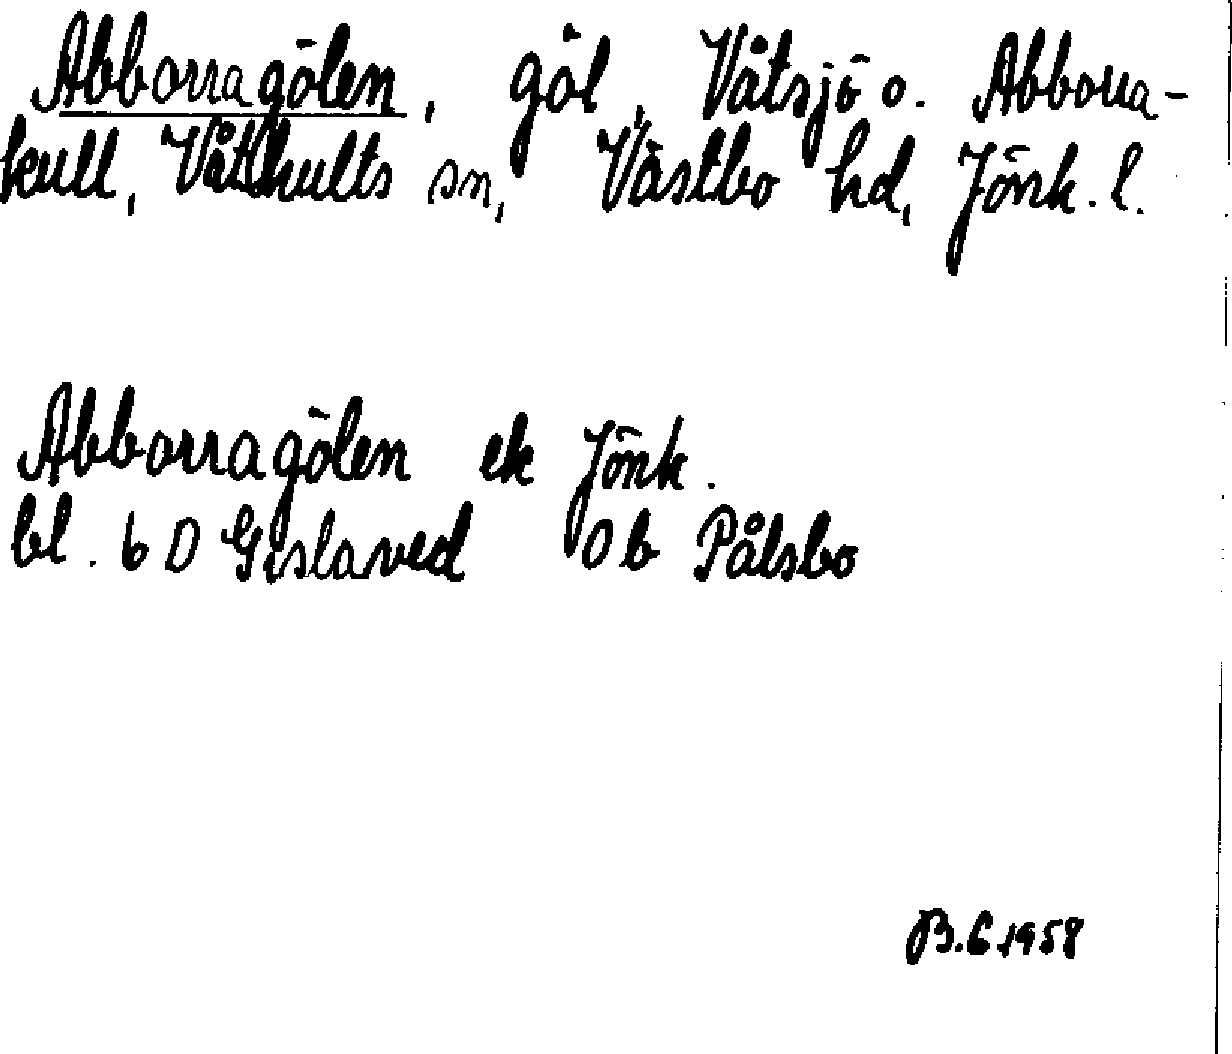 Abborragölen, göl, Våtsjö o. Abborra-
kull, Våthults sn, Västbo hd, Jönk. l.
Abborragölen ek Jönk.
bl. 6 D Gislaved 0 b Pålsbo
B.G 1958